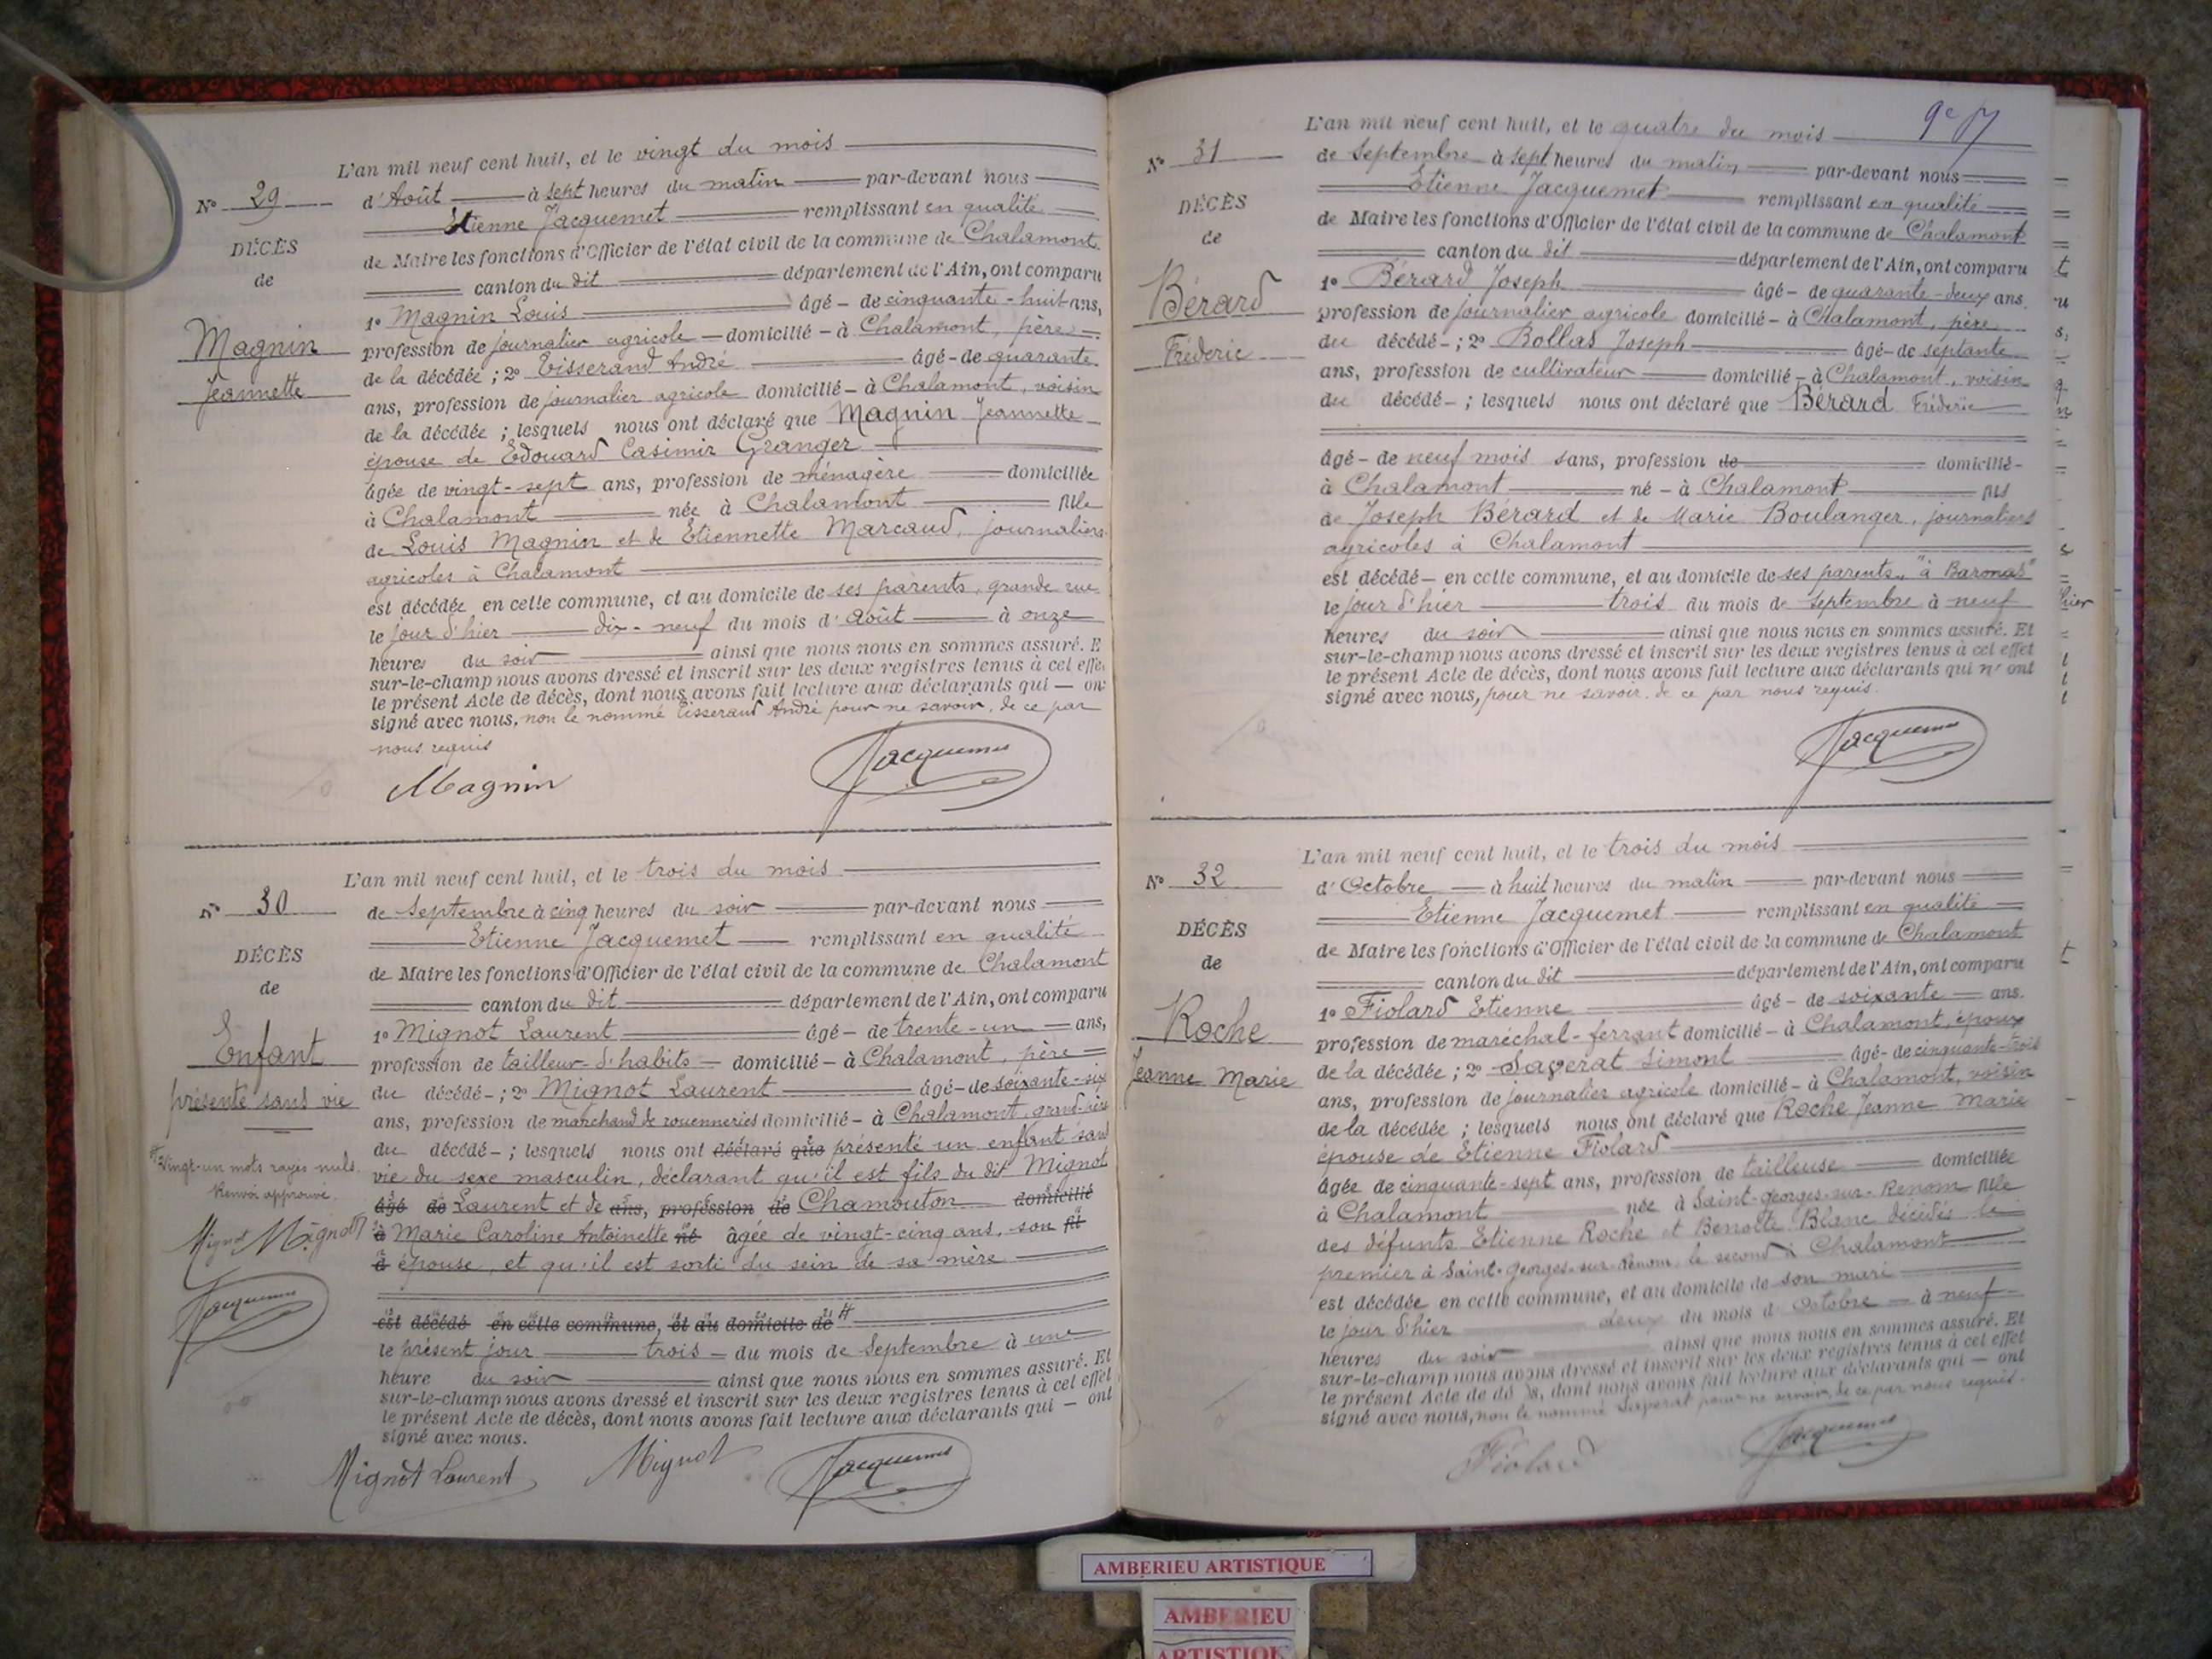 L'an mil neuf cent huit, et le vingt du mois
N° 29
d'Août à sept heures du matin par-devant nous
Etienne Jacquemet remplissant en qualité
DÉCÈS
de Maire les fonctions d'Officier de l'état civil de la commune de Chalamont
de
canton du dit département de l'Ain, ont comparu
1° Magnin Louis âgé - de cinquante-huit ans,
Magnin
profession de journalier agricole domicilié - à Chalamont, père
Jeannette
de la décédée ; 2° Tisserand André âgé - de quarante
ans, profession de journalier agricole domicilié - à Chalamont, voisin
de la décédée ; lesquels nous ont déclaré que Magnin Jeannette
épouse de Edouard Casimir Granger
âgée de vingt-sept ans, profession de ménagère domiciliée
à Chalamont née à Chalamont fille
de Louis Magnin et de Etiennette Marcaud, journaliers
agricoles à Chalamont
est décédée en cette commune, et au domicile de ses parents, grande rue
le jour d'hier dix-neuf du mois d'août à onze
heures du soir ainsi que nous nous en sommes assuré. E
sur-le-champ nous avons dressé et inscrit sur les deux registres tenus à cet effet
le présent Acte de décès, dont nous avons fait lecture aux déclarants qui — ont
signé avec nous, non le nommé Tisserand André pour ne savoir, de ce par
nous requis
Magnin Jacquemet
L'an mil neuf cent huit, et le trois du mois
N° 30
de Septembre à cinq heures du soir par-devant nous
Etienne Jacquemet remplissant en qualité
DÉCÈS
de Maire les fonctions d'Officier de l'état civil de la commune de Chalamont
de
canton du dit département de l'Ain, ont comparu
1° Mignot Laurent âgé - de trente-un ans,
Enfant
profession de tailleur d'habits domicilié - à Chalamont, père
présenté sans vie
du décédé - ; 2° Mignot Laurent âgé - de soixante-six
ans, profession de marchand de rouenneries domicilié - à Chalamont, grand-père
du décédé - ; lesquels nous ont déclaré que présenté un enfant sans
Vingt-un mots rayés nuls.
Renvoi approuvé.
vie du sexe masculin, déclarant qu'il est fils du dit Mignot
âgé de Laurent et de ans, profession de Chamouton domicilié
Mignot Mignot
à Marie Caroline Antoinette né âgée de vingt-cinq ans, son
à épouse, et qu'il est sorti du sein de sa mère
Jacquemet
est décédé en cette commune, et au domicile de
le présent jour trois du mois de Septembre à une
heure du soir ainsi que nous nous en sommes assuré. Et
sur-le-champ nous avons dressé et inscrit sur les deux registres tenus à cet effet
le présent Acte de décès, dont nous avons fait lecture aux déclarants qui — ont
signé avec nous.
Mignot Laurent Mignot Jacquemet
L'an mil neuf cent huit, et le quatre du mois
N° 31
de Septembre à sept heures du matin par-devant nous
Etienne Jacquemet remplissant en qualité
DÉCÈS
de Maire les fonctions d'Officier de l'état civil de la commune de Chalamont
de
canton du dit département de l'Ain, ont comparu
1° Bérard Joseph âgé - de quarante-deux ans.
Bérard
profession de journalier agricole domicilié - à Chalamont, père
Fréderic
du décédé - ; 2° Bollas Joseph âgé - de septante
ans, profession de cultivateur domicilié - à Chalamont, voisin
du décédé - ; lesquels nous ont déclaré que Bérard Fréderic
âgé - de neuf mois ans, profession de domicilié -
à Chalamont né - à Chalamont fils
de Joseph Bérard et de Marie Boulanger, journaliers
agricoles à Chalamont
est décédé — en cette commune, et au domicile de ses parents, "à Baronas"
le jour d'hier trois du mois de septembre à neuf
heures du soir ainsi que nous nous en sommes assuré. Et
sur-le-champ nous avons dressé et inscrit sur les deux registres tenus à cet effet
le présent Acte de décès, dont nous avons fait lecture aux déclarants qui n'ont
signé avec nous, pour ne savoir, de ce par nous requis.
Jacquemet
L'an mil neuf cent huit, et le trois du mois
N° 32
d'Octobre à huit heures du matin par-devant nous
Etienne Jacquemet remplissant en qualité
DÉCÈS
de Maire les fonctions d'Officier de l'état civil de la commune de Chalamont
de
canton du dit département de l'Ain, ont comparu
1° Fiolard Etienne âgé - de soixante ans.
Roche
profession de maréchal-ferrant domicilié - à Chalamont, époux
Jeanne Marie
de la décédée ; 2° Saperat Simont âgé - de cinquante-trois
ans, profession de journalier agricole domicilié - à Chalamont, voisin
de la décédée ; lesquels nous ont déclaré que Roche Jeanne Marie
épouse de Etienne Fiolard
âgée de cinquante-sept ans, profession de tailleuse domiciliée
à Chalamont née à Saint-Georges-sur-Renom fille
des défunts Etienne Roche et Benoîte Blanc décédés le
premier à Saint-Georges-sur-Renom, le second à Chalamont
est décédée en cette commune, et au domicile de son mari
le jour d'hier deux du mois d'Octobre à neuf
heures du soir ainsi que nous nous en sommes assuré. Et
sur-le-champ nous avons dressé et inscrit sur les deux registres tenus à cet effet
le présent Acte de décès, dont nous avons fait lecture aux déclarants qui — ont
signé avec nous, non le nommé Saperat pour ne savoir, de ce par nous requis.
Fiolard Jacquemet
hier
AMBERIEU ARTISTIQUE
AMBERIEU